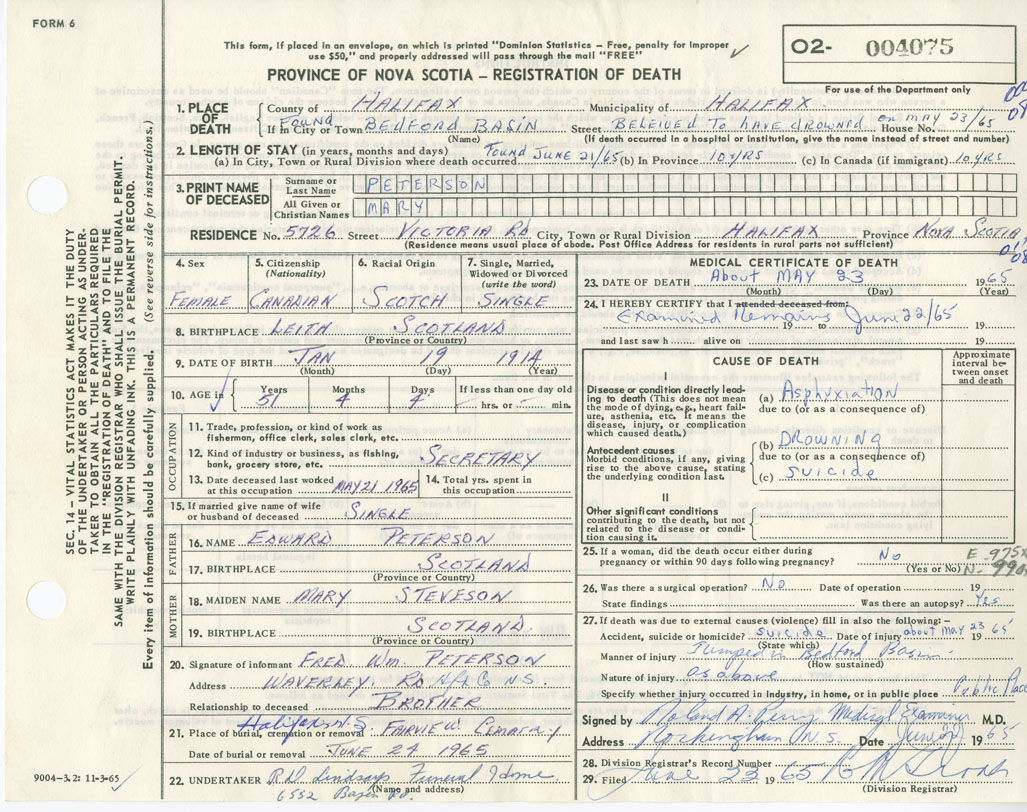 FORM 6
This form, if placed in an envelope, on which is printed "Dominion Statistics – Free, penalty for improper
use $50," and properly addressed will pass through the mail "FREE"
O2- 004075
For use of the Department only
PROVINCE OF NOVA SCOTIA – REGISTRATION OF DEATH
1. PLACE OF DEATH County of HALIFAX Municipality of HALIFAX on MAY 23/65
Found If in City or Town BEDFORD BASIN Street BELEIVED TO HAVE DROWNED House No.
(Name) (If death occurred in a hospital or institution, give the name instead of street and number)
2. LENGTH OF STAY (in years, months and days)
(a) In City, Town or Rural Division where death occurred Found JUNE 21/65 (b) In Province 10 YRS (c) In Canada (if immigrant) 10 YRS
3. PRINT NAME OF DECEASED
Surname or Last Name PETERSON
All Given or Christian Names MARY
RESIDENCE No. 5726 Street VICTORIA RD City, Town or Rural Division HALIFAX Province NOVA SCOTIA
(Residence means usual place of abode. Post Office Address for residents in rural parts not sufficient)
4. Sex FEMALE
5. Citizenship (Nationality) CANADIAN
6. Racial Origin SCOTCH
7. Single, Married, Widowed or Divorced (write the word) SINGLE
8. BIRTHPLACE LEITH SCOTLAND
(Province or Country)
9. DATE OF BIRTH JAN 19 1914
(Month) (Day) (Year)
10. AGE in Years 51 Months 4 Days 4 If less than one day old hrs. or min.
OCCUPATION
11. Trade, profession, or kind of work as fisherman, office clerk, sales clerk, etc.
12. Kind of industry or business, as fishing, bank, grocery store, etc. SECRETARY
13. Date deceased last worked at this occupation MAY 21 1965
14. Total yrs. spent in this occupation
15. If married give name of wife or husband of deceased SINGLE
FATHER
16. NAME EDWARD PETERSON
17. BIRTHPLACE SCOTLAND
(Province or Country)
MOTHER
18. MAIDEN NAME MARY STEVESON
19. BIRTHPLACE SCOTLAND
(Province or Country)
20. Signature of informant FRED. Wm. PETERSON
Address WAVERLEY. RD N.S.
Relationship to deceased BROTHER
21. Place of burial, cremation or removal Halifax N.S. FAIRVIEW CEMATRY
Date of burial or removal JUNE 24 1965
22. UNDERTAKER Lindsays Funeral Home
(Name and address)
6552 Basin Rd.
MEDICAL CERTIFICATE OF DEATH
23. DATE OF DEATH About MAY 23 1965
(Month) (Day) (Year)
24. I HEREBY CERTIFY that I attended deceased from:
Examined Remains June 22/65
19 to 19
and last saw h alive on 19
CAUSE OF DEATH
Approximate interval between onset and death
I
Disease or condition directly leading to death (This does not mean the mode of dying, e.g., heart failure, asthenia, etc. It means the disease, injury, or complication which caused death.)
(a) Asphyxiation
due to (or as a consequence of)
Antecedent causes
Morbid conditions, if any, giving rise to the above cause, stating the underlying condition last.
(b) DROWNING
due to (or as a consequence of)
(c) SUICIDE
II
Other significant conditions contributing to the death, but not related to the disease or condition causing it.
25. If a woman, did the death occur either during pregnancy or within 90 days following pregnancy? No
(Yes or No)
26. Was there a surgical operation? NO Date of operation 19
State findings Was there an autopsy? Yes
27. If death was due to external causes (violence) fill in also the following: –
Accident, suicide or homicide? suicide Date of injury about MAY 23 1965
(State which)
Manner of injury Jumped in Bedford Basin
(How sustained)
Nature of injury as above
Specify whether injury occurred in industry, in home, or in public place Public Place
Signed by Roland A. Perry Medical Examiner M.D.
Address Rockingham N.S. Date 1965
28. Division Registrar's Record Number
29. Filed June 23 1965
(Division Registrar)
SEC. 14 – VITAL STATISTICS ACT MAKES IT THE DUTY
OF THE UNDERTAKER OR PERSON ACTING AS UNDER-
TAKER TO OBTAIN ALL THE PARTICULARS REQUIRED
IN THE "REGISTRATION OF DEATH" AND TO FILE THE
SAME WITH THE DIVISION REGISTRAR WHO SHALL ISSUE THE BURIAL PERMIT.
WRITE PLAINLY WITH UNFADING INK. THIS IS A PERMANENT RECORD.
Every item of information should be carefully supplied. (See reverse side for instructions.)
9004-3.2: 11-3-65